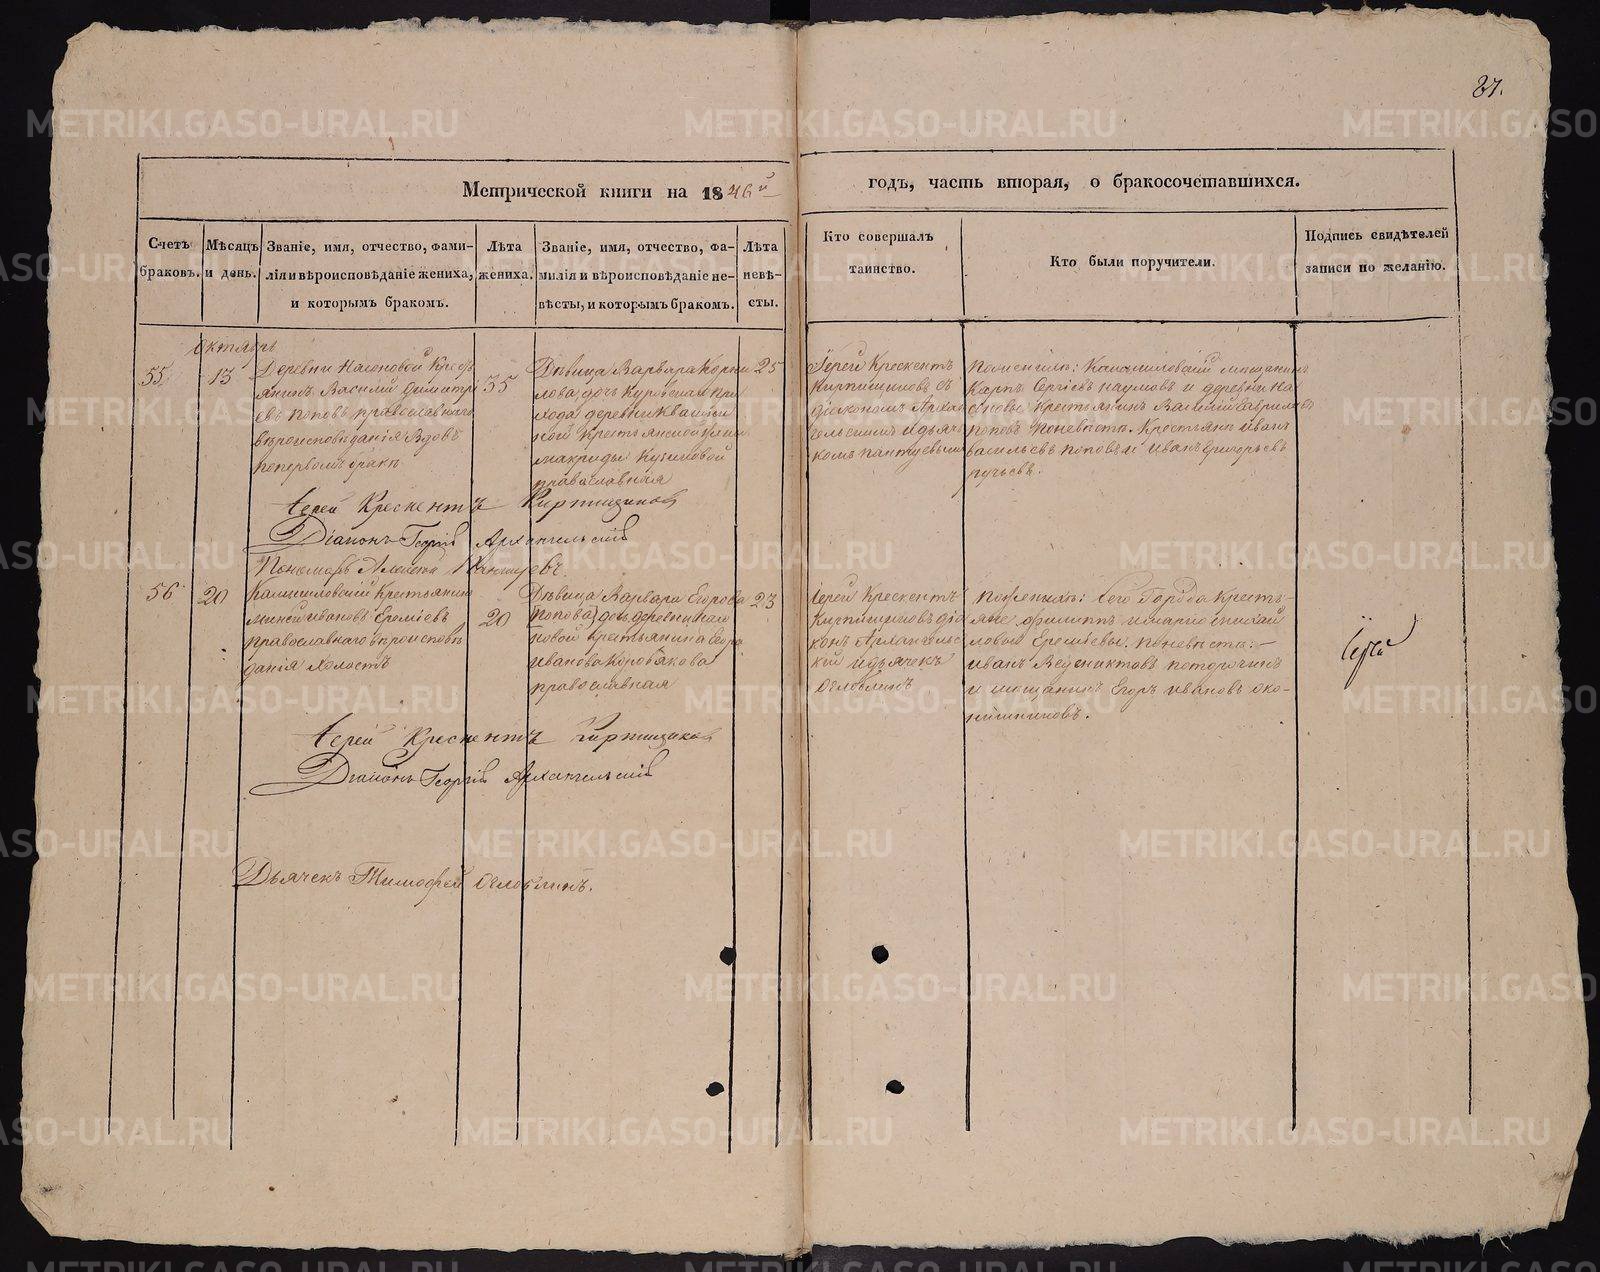 87.
Метрической книги на 1846й годъ, часть вторая, о бракосочетавшихся.
Счетъ браковъ.
Мѣсяцъ и день.
Званіе, имя, отчество, фами-
лія и вѣроисповѣданіе жениха,
и которымъ бракомъ.
Лѣта
жениха.
Званіе, имя, отчество, фа-
милія и вѣроисповѣданіе не-
вѣсты, и которымъ бракомъ.
Лѣта
невѣ-
сты.
Кто совершалъ
таинство.
Кто были поручители.
Подпись свидѣтелей
записи по желанію.
Октябрь
55
13
Деревни Насоновой Кресть
янинъ Василій Димитрі
евъ Поповъ православнаго
вѣроисповѣданія Вдовъ
по первомъ бракѣ
35
Дѣвица Варвара Корни
лова дочь
хода деревни
ной Крестьянской
Макриды Кузминовой
православная
25
Іерей Крескентъ
Кирпищиковъ съ
діакономъ Архан
гельскимъ и дьяч
комъ Пантуевымъ
По женихѣ: Камышловскій мещанинъ
Карпъ Сергіевъ Наумовъ и деревни На
соновы Крестьянинъ Василій Гавриловъ
Поповъ По невѣстѣ. Крестьяне Иванъ
Васильевъ Поповъ и Иванъ Григорьевъ
Ручьевъ.
Іерей Крескентъ Кирпищиковъ
Діаконъ Георгій Архангельскій
Пономарь Алексей Пантуевъ
56
20
Камышловскій Крестьянинъ
Ивановъ Еремѣевъ
православнаго вѣроисповѣ
данія Холостъ
20
Дѣвица Варвара Егорова
Попова дочь деревни Насо
новой крестьянина Егора
Иванова Коробякова
православная
23
Іерей Крескентъ
Кирпищиковъ діа
конъ Архангельс
кій и дьячекъ
Оглоблинъ
По женихѣ: Сего Города Кресть-
яне Филиппъ и Марко Михаи
ловы Еремѣевы. По невѣстѣ:-
Иванъ Веденихтовъ
и мещанинъ Егоръ Ивановъ Око-
нишниковъ.
Іерей Крескентъ Кирпищиковъ
Діаконъ Георгій Архангельскій
Дьячекъ Тимофей Оглоблинъ.
METRIKI.GASO-URAL.RU